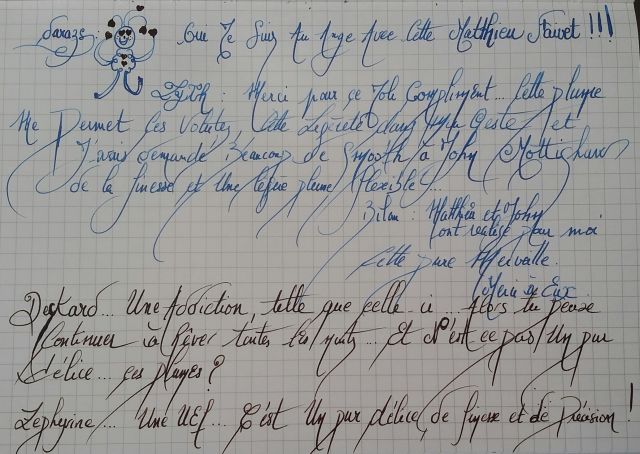 Que Je Suis Au Ange Avec Cette Matthieu Faivet !!!
Zyth : Merci pour ce Joli Compliment... Cette plume
Me Permet Ces Volutes, Cette Légèreté dans Mon Geste et
J'avais demandé Beaucoup de Smooth à John Mottishaw
de la finesse et Une légère plume flexible...
Bilan : Matthieu et John
ont réalisé pour moi
Cette pure Merveille.
Merci à Eux.
Deckard... Une Addiction, telle que celle-ci... Alors tu peux
Continuer à Rêver toutes les nuits... Et N'est ce pas Un pur
délice... ces plumes ?
Zephyrine... Une UEF... C'est Un pur délice, de finesse et de Précision !